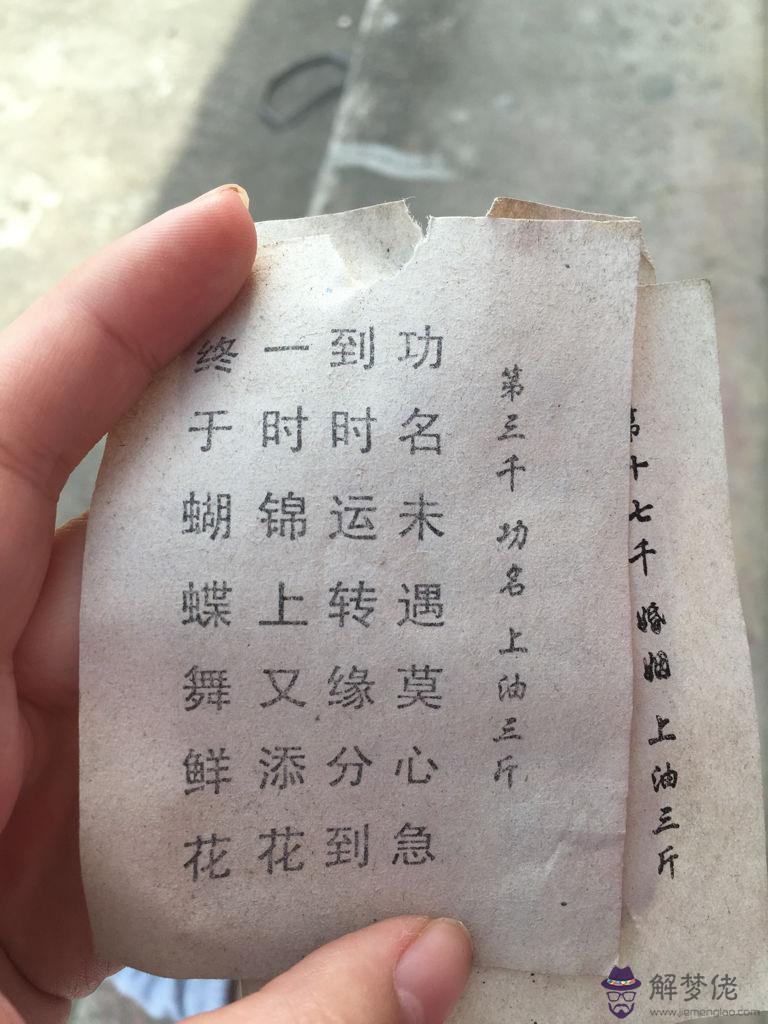 第三千 功名 上油三斤
功名未遇莫心急
到时运转缘分到
一时锦上又添花
终于蝴蝶舞鲜花
第十七千 婚姻 上油三斤
解梦佬
www.jiemenglao.com